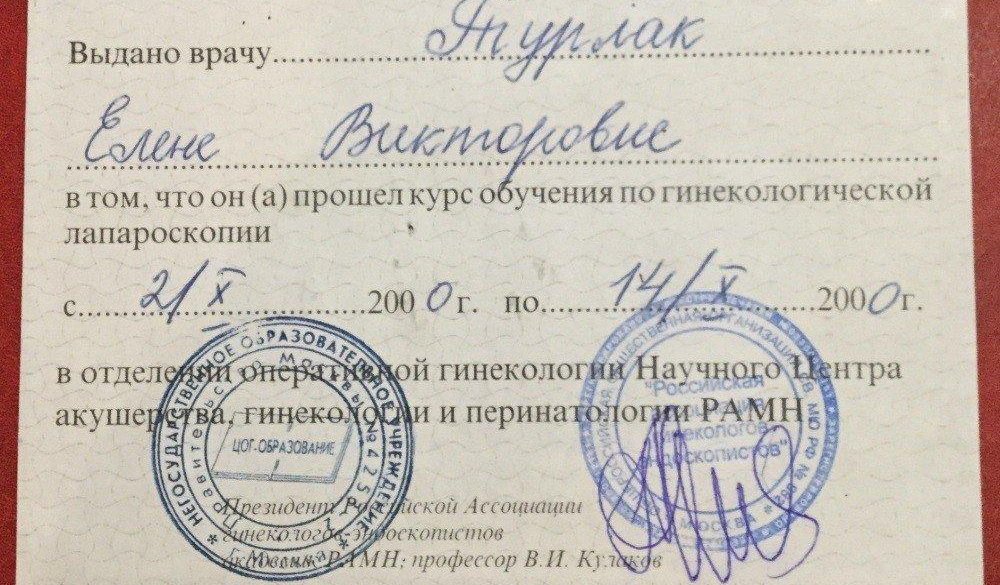 Выдано врачу Турлак
Елене Викторовне
в том, что он (а) прошел курс обучения по гинекологической
лапароскопии
с 2/X 2000 г. по 14/X 2000 г.
в отделении оперативной гинекологии Научного Центра
акушерства, гинекологии и перинатологии РАМН
НЕГОСУДАРСТВЕННОЕ ОБРАЗОВАТЕЛЬНОЕ УЧРЕЖДЕНИЕ
ЦОГ-ОБРАЗОВАНИЕ
"Российская
гинекологов-
эндоскопистов"
МОСКВА
Президент Российской Ассоциации
гинекологов-эндоскопистов
академик РАМН; профессор В.И. Кулаков